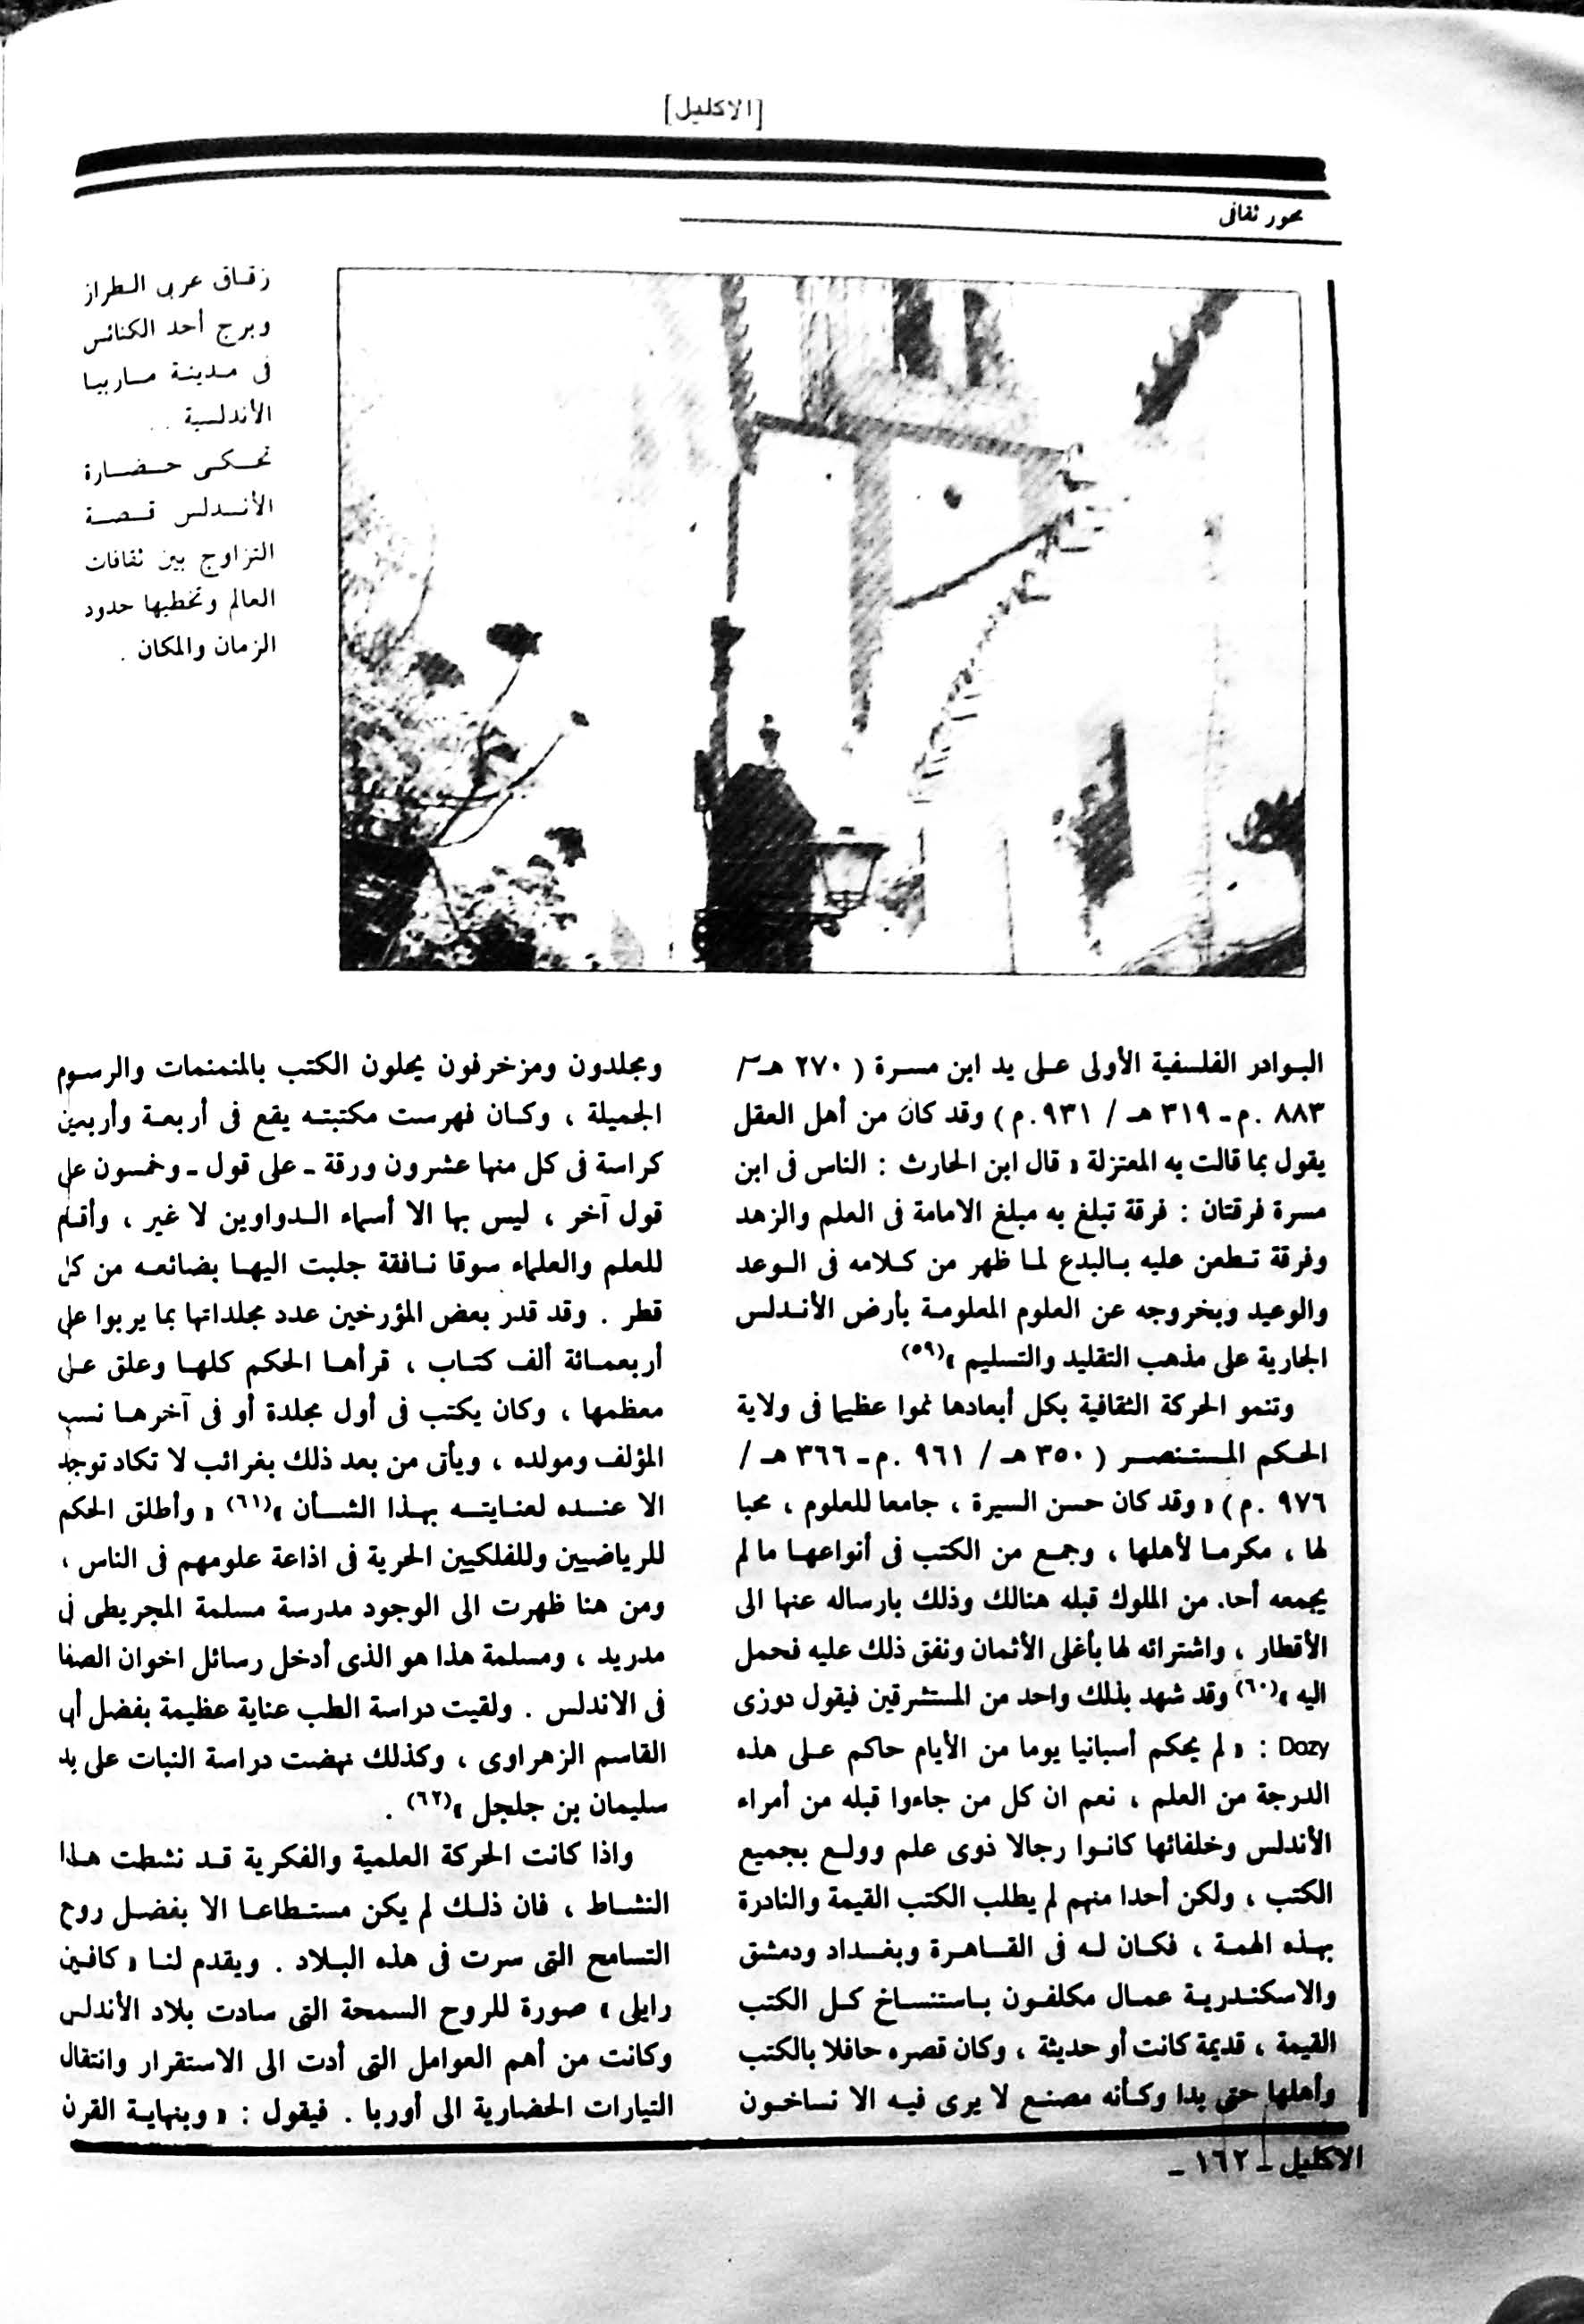 [الاكليل]
محور ثقافى
زقاق عربى الطراز
وبرج أحد الكنائس
فى مدينة ماربيا
الأندلسية . .
تحكى حضارة
الأندلس قصة
التزاوج بين ثقافات
العالم وتخطيها حدود
الزمان والمكان .
البوادر الفلسفية الأولى على يد ابن مسرة ( ٢٧٠ هـ /
٨٨٣ .م - ٣١٩ هـ / ٩٣١ .م ) وقد كان من أهل العقل
يقول بما قالت به المعتزلة « قال ابن الحارث : الناس فى ابن
مسرة فرقتان : فرقة تبلغ به مبلغ الامامة فى العلم والزهد
وفرقة تطعن عليه بالبدع لما ظهر من كلامه فى الوعد
والوعيد وبخروجه عن العلوم المعلومة بأرض الأندلس
الجارية على مذهب التقليد والتسليم »(٥٩)
وتنمو الحركة الثقافية بكل أبعادها نموا عظيما فى ولاية
الحكم المستنصر ( ٣٥٠ هـ / ٩٦١ .م - ٣٦٦ هـ /
٩٧٦ .م ) « وقد كان حسن السيرة ، جامعا للعلوم ، محبا
لها ، مكرما لأهلها ، وجمع من الكتب فى أنواعها ما لم
يجمعه أحد. من الملوك قبله هنالك وذلك بارساله عنها الى
الأقطار ، واشترائه لها بأغلى الأثمان ونفق ذلك عليه فحمل
اليه »(٦٠) وقد شهد بذلك واحد من المستشرقين فيقول دوزى
Dozy : « لم يحكم أسبانيا يوما من الأيام حاكم على هذه
الدرجة من العلم ، نعم ان كل من جاءوا قبله من أمراء
الأندلس وخلفائها كانوا رجالا ذوى علم وولع بجميع
الكتب ، ولكن أحدا منهم لم يطلب الكتب القيمة والنادرة
بهذه الهمة ، فكان له فى القاهرة وبغداد ودمشق
والاسكندرية عمال مكلفون باستنساخ كل الكتب
القيمة ، قديمة كانت أو حديثة ، وكان قصره حافلا بالكتب
وأهلها حتى بدا وكأنه مصنع لا يرى فيه الا نساخون
ومجلدون ومزخرفون يحلون الكتب بالمنمنمات والرسوم
الجميلة ، وكان فهرست مكتبته يقع فى أربعة وأربعين
كراسة فى كل منها عشرون ورقة - على قول - وخمسون على
قول آخر ، ليس بها الا أسماء الدواوين لا غير ، وأقام
للعلم والعلماء سوقا نافقة جلبت اليها بضائعه من كل
قطر . وقد قدر بعض المؤرخين عدد مجلداتها بما يربوا على
أربعمائة ألف كتاب ، قرأها الحكم كلها وعلق على
معظمها ، وكان يكتب فى أول مجلدة أو فى آخرها نسب
المؤلف ومولده ، ويأتى من بعد ذلك بغرائب لا تكاد توجد
الا عنده لعنايته بهذا الشأن »(٦١) « وأطلق الحكم
للرياضيين وللفلكيين الحرية فى اذاعة علومهم فى الناس ،
ومن هنا ظهرت الى الوجود مدرسة مسلمة المجريطى فى
مدريد ، ومسلمة هذا هو الذى أدخل رسائل اخوان الصفا
فى الاندلس . ولقيت دراسة الطب عناية عظيمة بفضل أبى
القاسم الزهراوى ، وكذلك نهضت دراسة النبات على يد
سليمان بن جلجل »(٦٢) .
واذا كانت الحركة العلمية والفكرية قد نشطت هذا
النشاط ، فان ذلك لم يكن مستطاعا الا بفضل روح
التسامح التى سرت فى هذه البلاد . ويقدم لنا « كافين
رايلى » صورة للروح السمحة التى سادت بلاد الأندلس
وكانت من أهم العوامل التى أدت الى الاستقرار وانتقال
التيارات الحضارية الى أوربا . فيقول : « وبنهاية القرن
الاكليل - ١٦٢ -